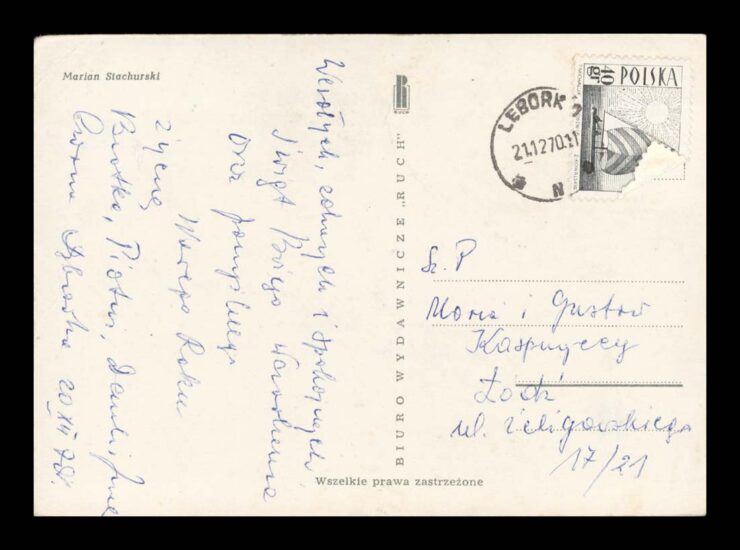 Marian Stachurski
Wesołych, zdrowych i spokojnych
Świąt Bożego Narodzenia
oraz pomyślnego
Nowego Roku
życzą
Piotruś,
20 XII 70.
RUCH
BIURO WYDAWNICZE „RUCH"
Wszelkie prawa zastrzeżone
40 gr
POLSKA
LĘBORK
21.12.70.11
Sz. P
Maria i Gustaw
Kasprzyccy
Łódź
ul. Żeligowskiego
17/21